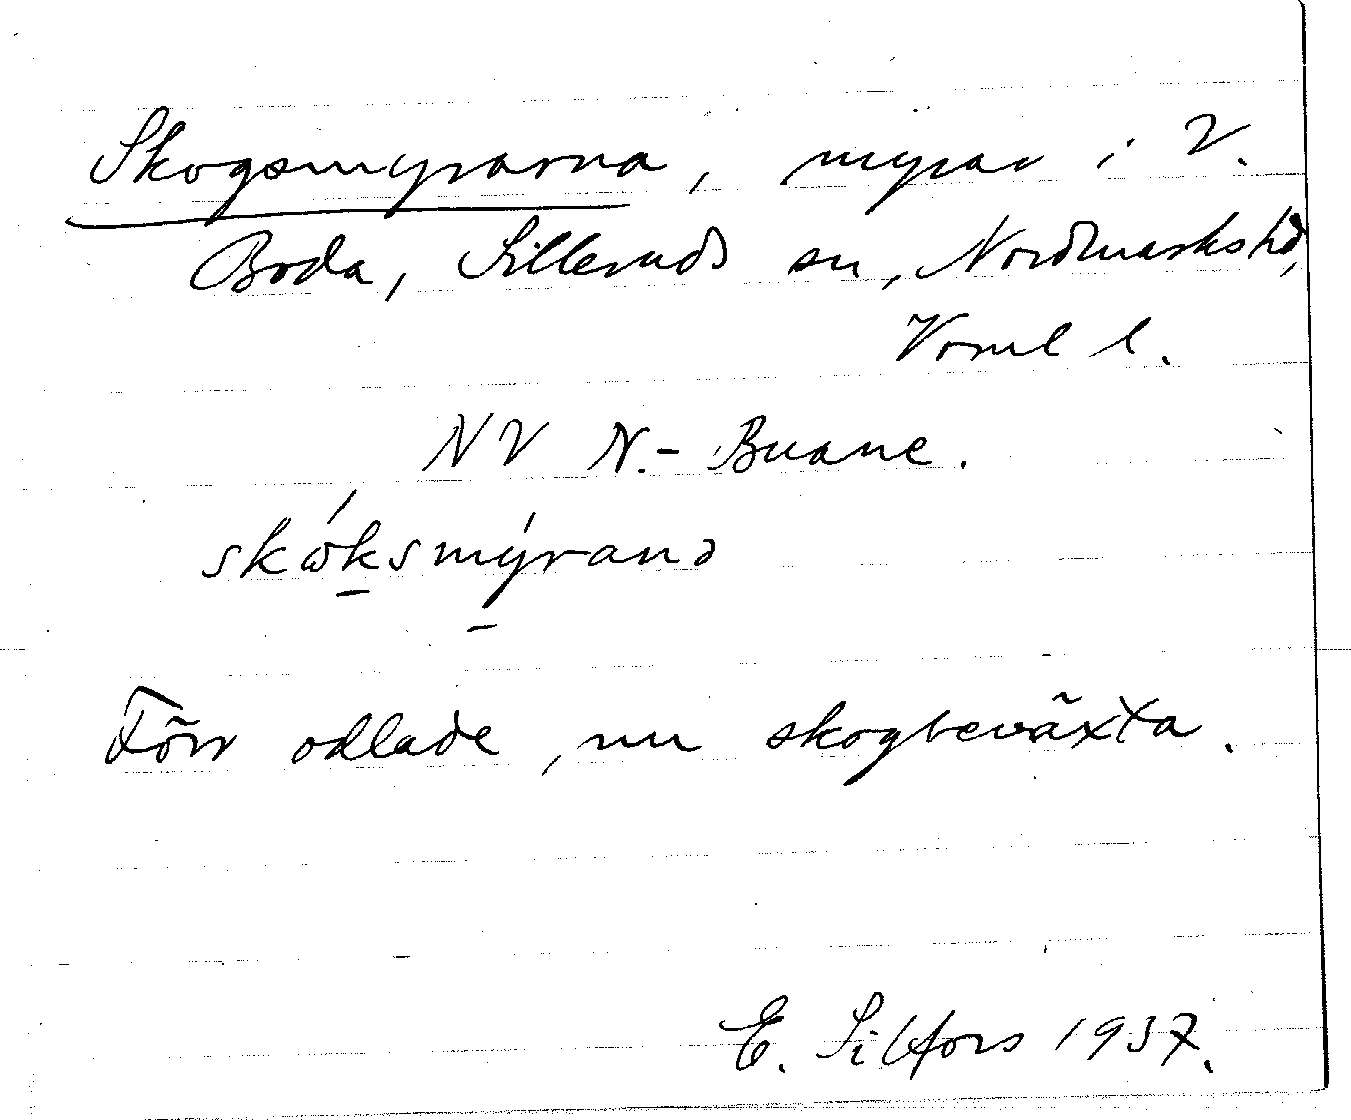 Skogsmyrarna, myrar i V.
Boda, Silleruds sn, Nordmarks hd,
Värml l.
NV N.- Buane.
skɷ́ksmýranə
Förr odlade, nu skogbeväxta.
E. Silfors 1937.